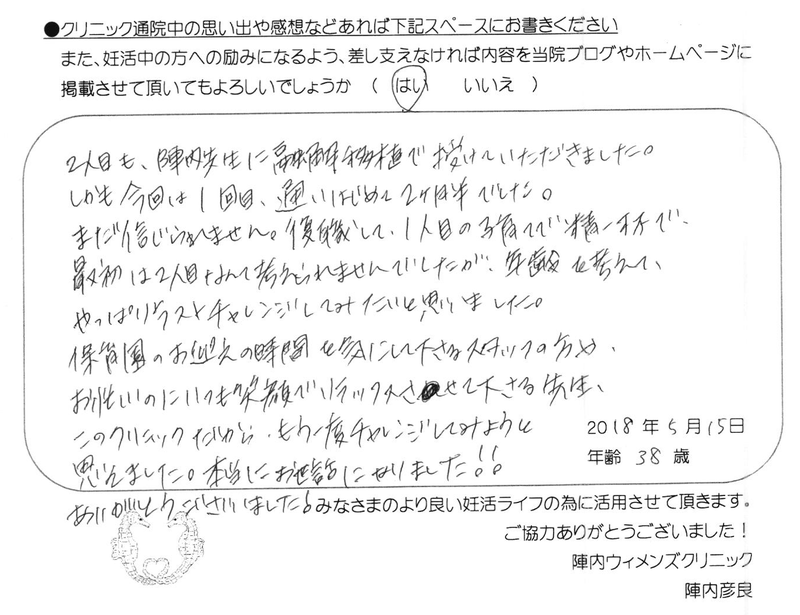 ●クリニック通院中の思い出や感想などあれば下記スペースにお書きください
また、妊活中の方への励みになるよう、差し支えなければ内容を当院ブログやホームページに
掲載させて頂いてもよろしいでしょうか ( はい いいえ )
2人目も、陣内先生に融解移植で授けていただきました。
しかも今回は1回目、通いはじめて2ヶ月半でした。
まだ信じられません。復職して、1人目の子育てで精一杯で、
最初は2人目なんて考えられませんでしたが、年齢を考えて、
やっぱりラストチャレンジしてみたいと思いました。
保育園のお迎えの時間を気にして下さるスタッフの方や、
お忙しいのにいつも笑顔でリラックスさせて下さる先生、
このクリニックだから、もう一度チャレンジしてみようと
思えました。本当にお世話になりました!!
ありがとうございました!
2018年5月15日
年齢 38歳
みなさまのより良い妊活ライフの為に活用させて頂きます。
ご協力ありがとうございました!
陣内ウィメンズクリニック
陣内彦良